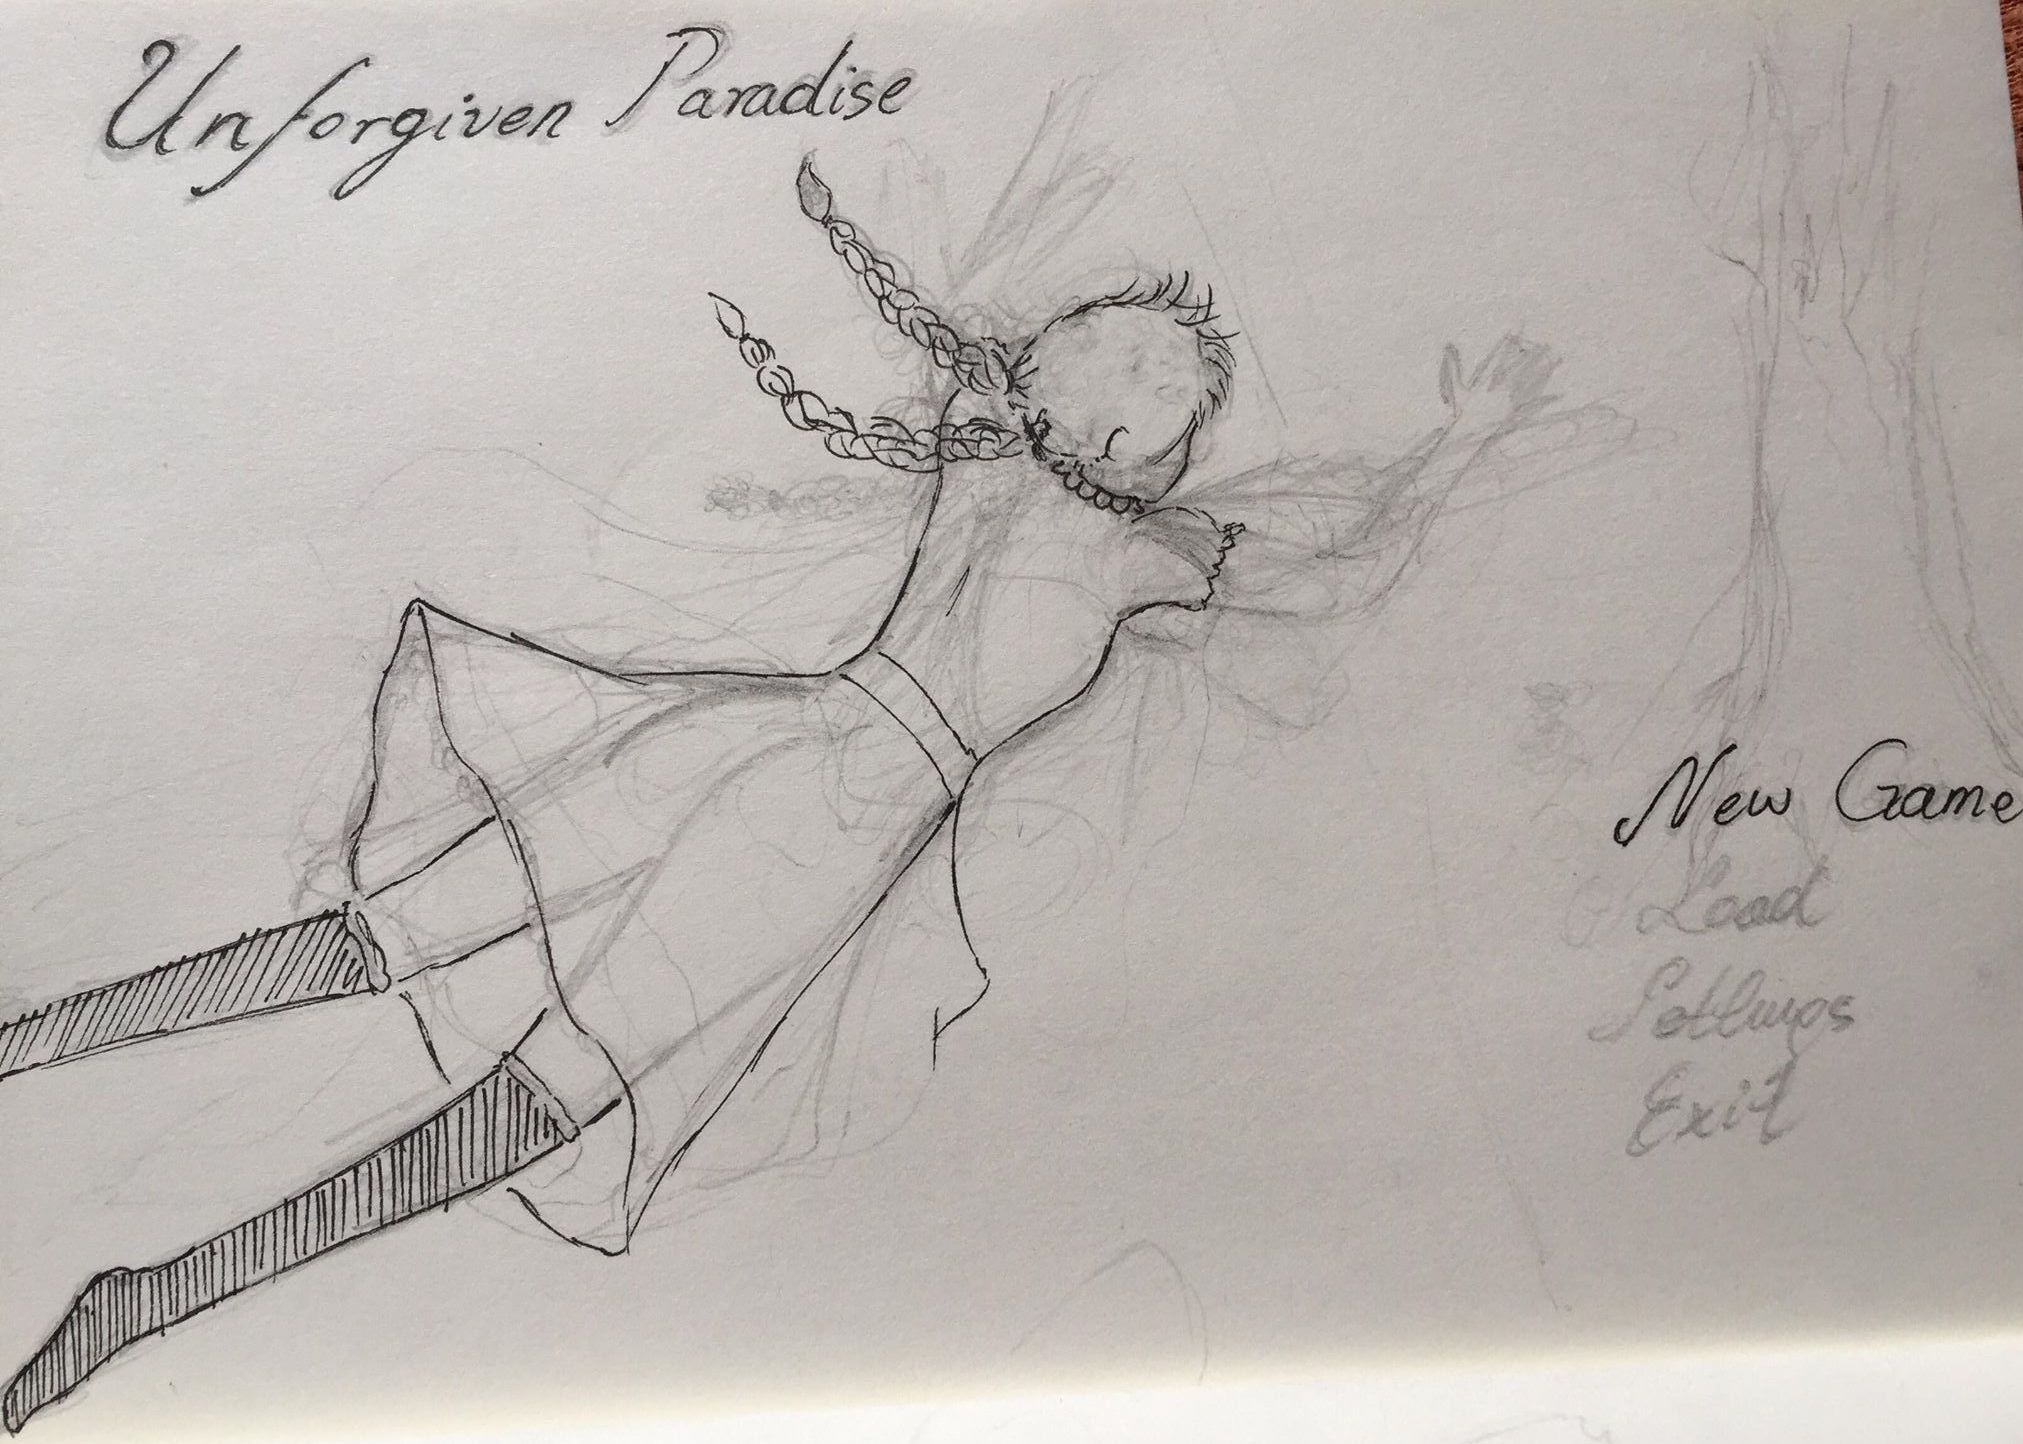 Unforgiven Paradise
New Game
Load
Settings
Exit